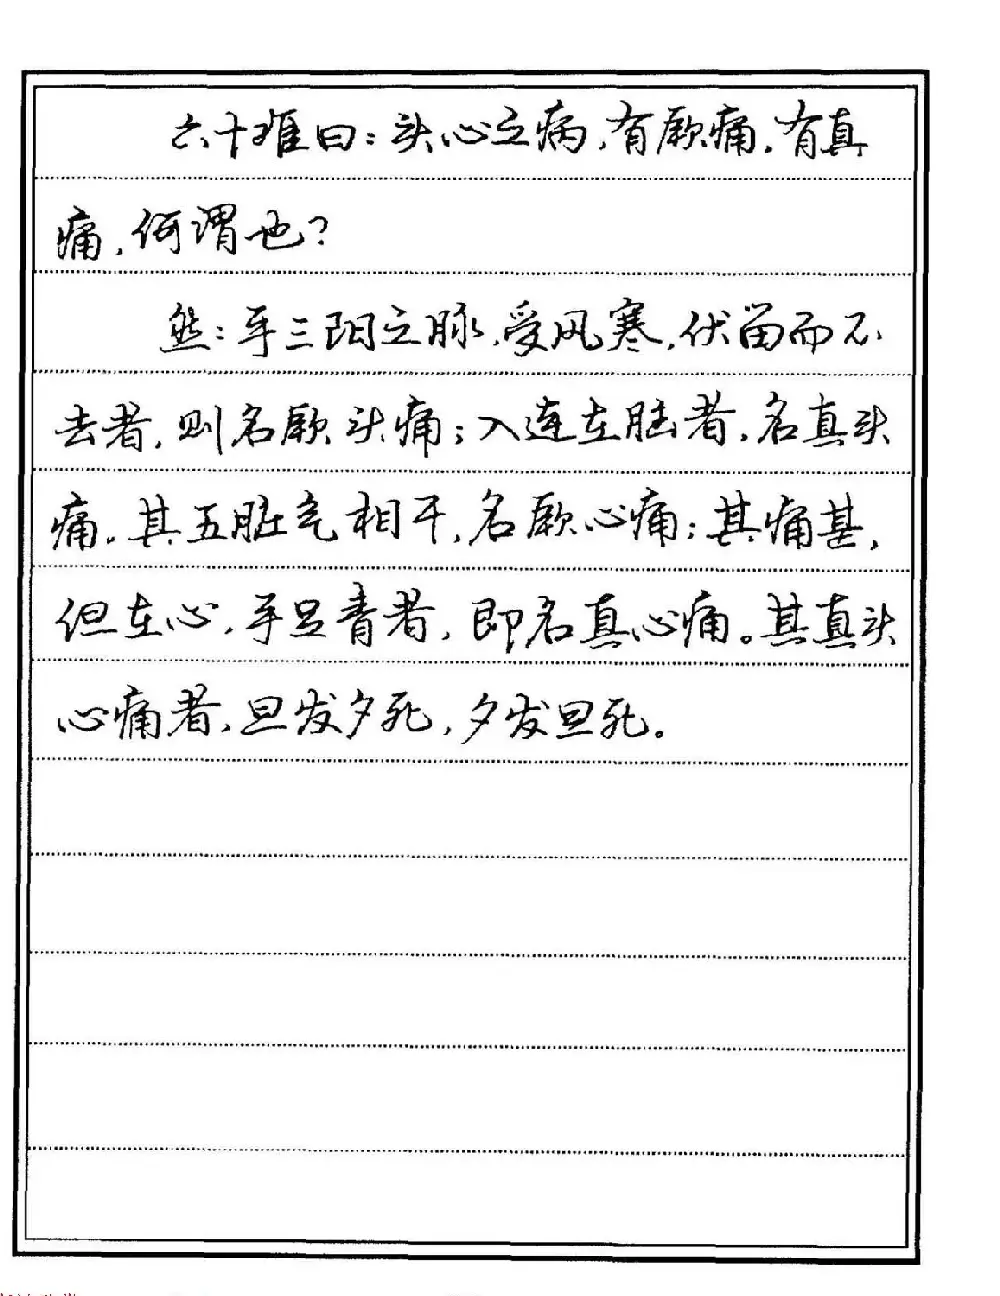 六十难曰：头心之病，有厥痛，有真
痛，何谓也？
然：手三阳之脉，受风寒，伏留而不
去者，则名厥头痛；入连在脑者，名真头
痛。其五脏气相干，名厥心痛；其痛甚，
但在心，手足青者，即名真心痛。其真头
心痛者，旦发夕死，夕发旦死。